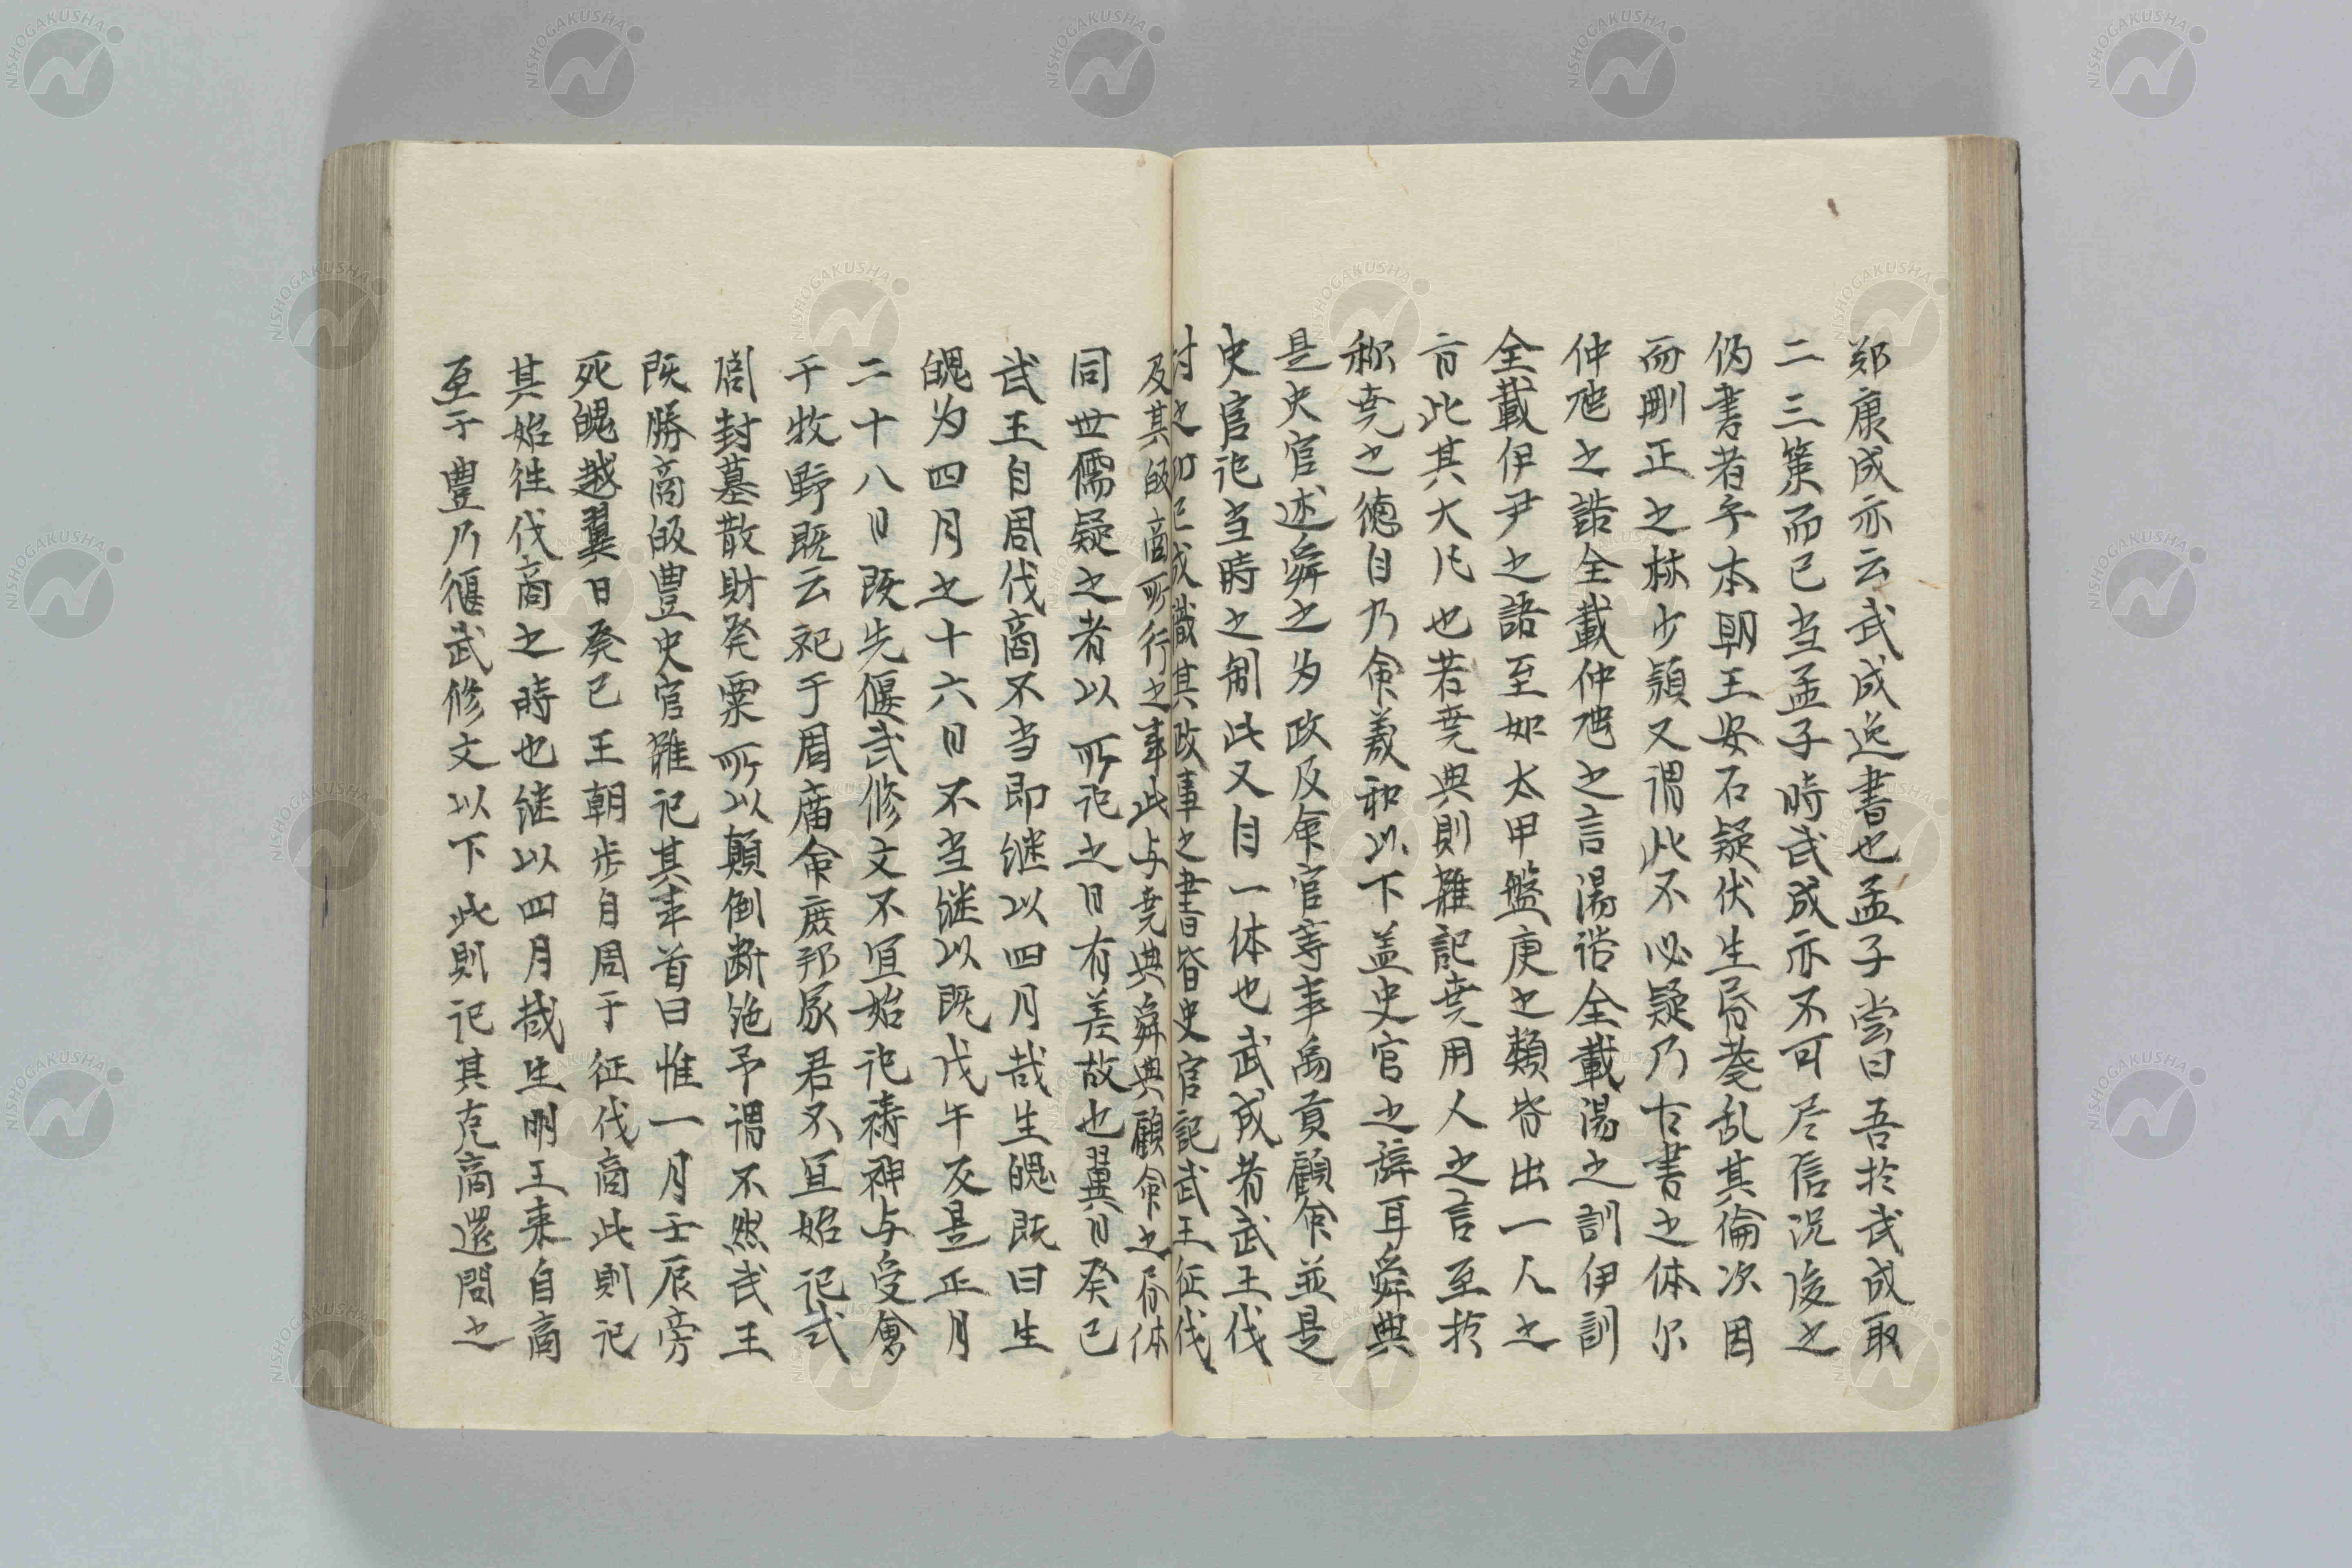 郑康成亦云武成逸書也孟子尝曰吾扵武成取
二三策而已当孟子時武成亦不可尽信况後之
伪書者乎本朝王安石疑伏生昏耄乱其倫次因
而刪正之林少頴又謂此不必疑乃古書之体尔
仲虺之誥全載仲虺之言湯诰全載湯之訓伊訓
全載伊尹之語至如太甲盤庚之類皆出一人之
言此其大凡也若尭典則雜記尭用人之言至扵
称尭之徳自乃命羲和以下盖史官之辞耳舜典
是史官述舜之为政及命官等事禹貢顧命並是
史官记当時之制此又自一体也武成者武王伐
紂之 已成識其政事之書皆史官記武王征伐
及其皈商所行之事此与尭典舜典顧命之体
同世儒疑之者以所记之日有差故也翼日癸已
武王自周伐商不当即継以四月哉生魄既曰生
魄为四月之十六日不当継以既戊午及是正月
二十八日既先偃武修文不宜始记祷神与受會
于牧野既云祀于周廟命庶邦冡君不宜始记式
閭封墓散財癸粟所以顛倒断绝予謂不然武王
既勝商皈豊史官雜记其事首曰惟一月壬辰旁
死魄越翼日癸已王朝步自周于征伐商此則记
其始徃伐商之時也継以四月哉生明王来自商
至于豊乃偃武修文以下此則记其克商還間之
NISHOGAKUSHA